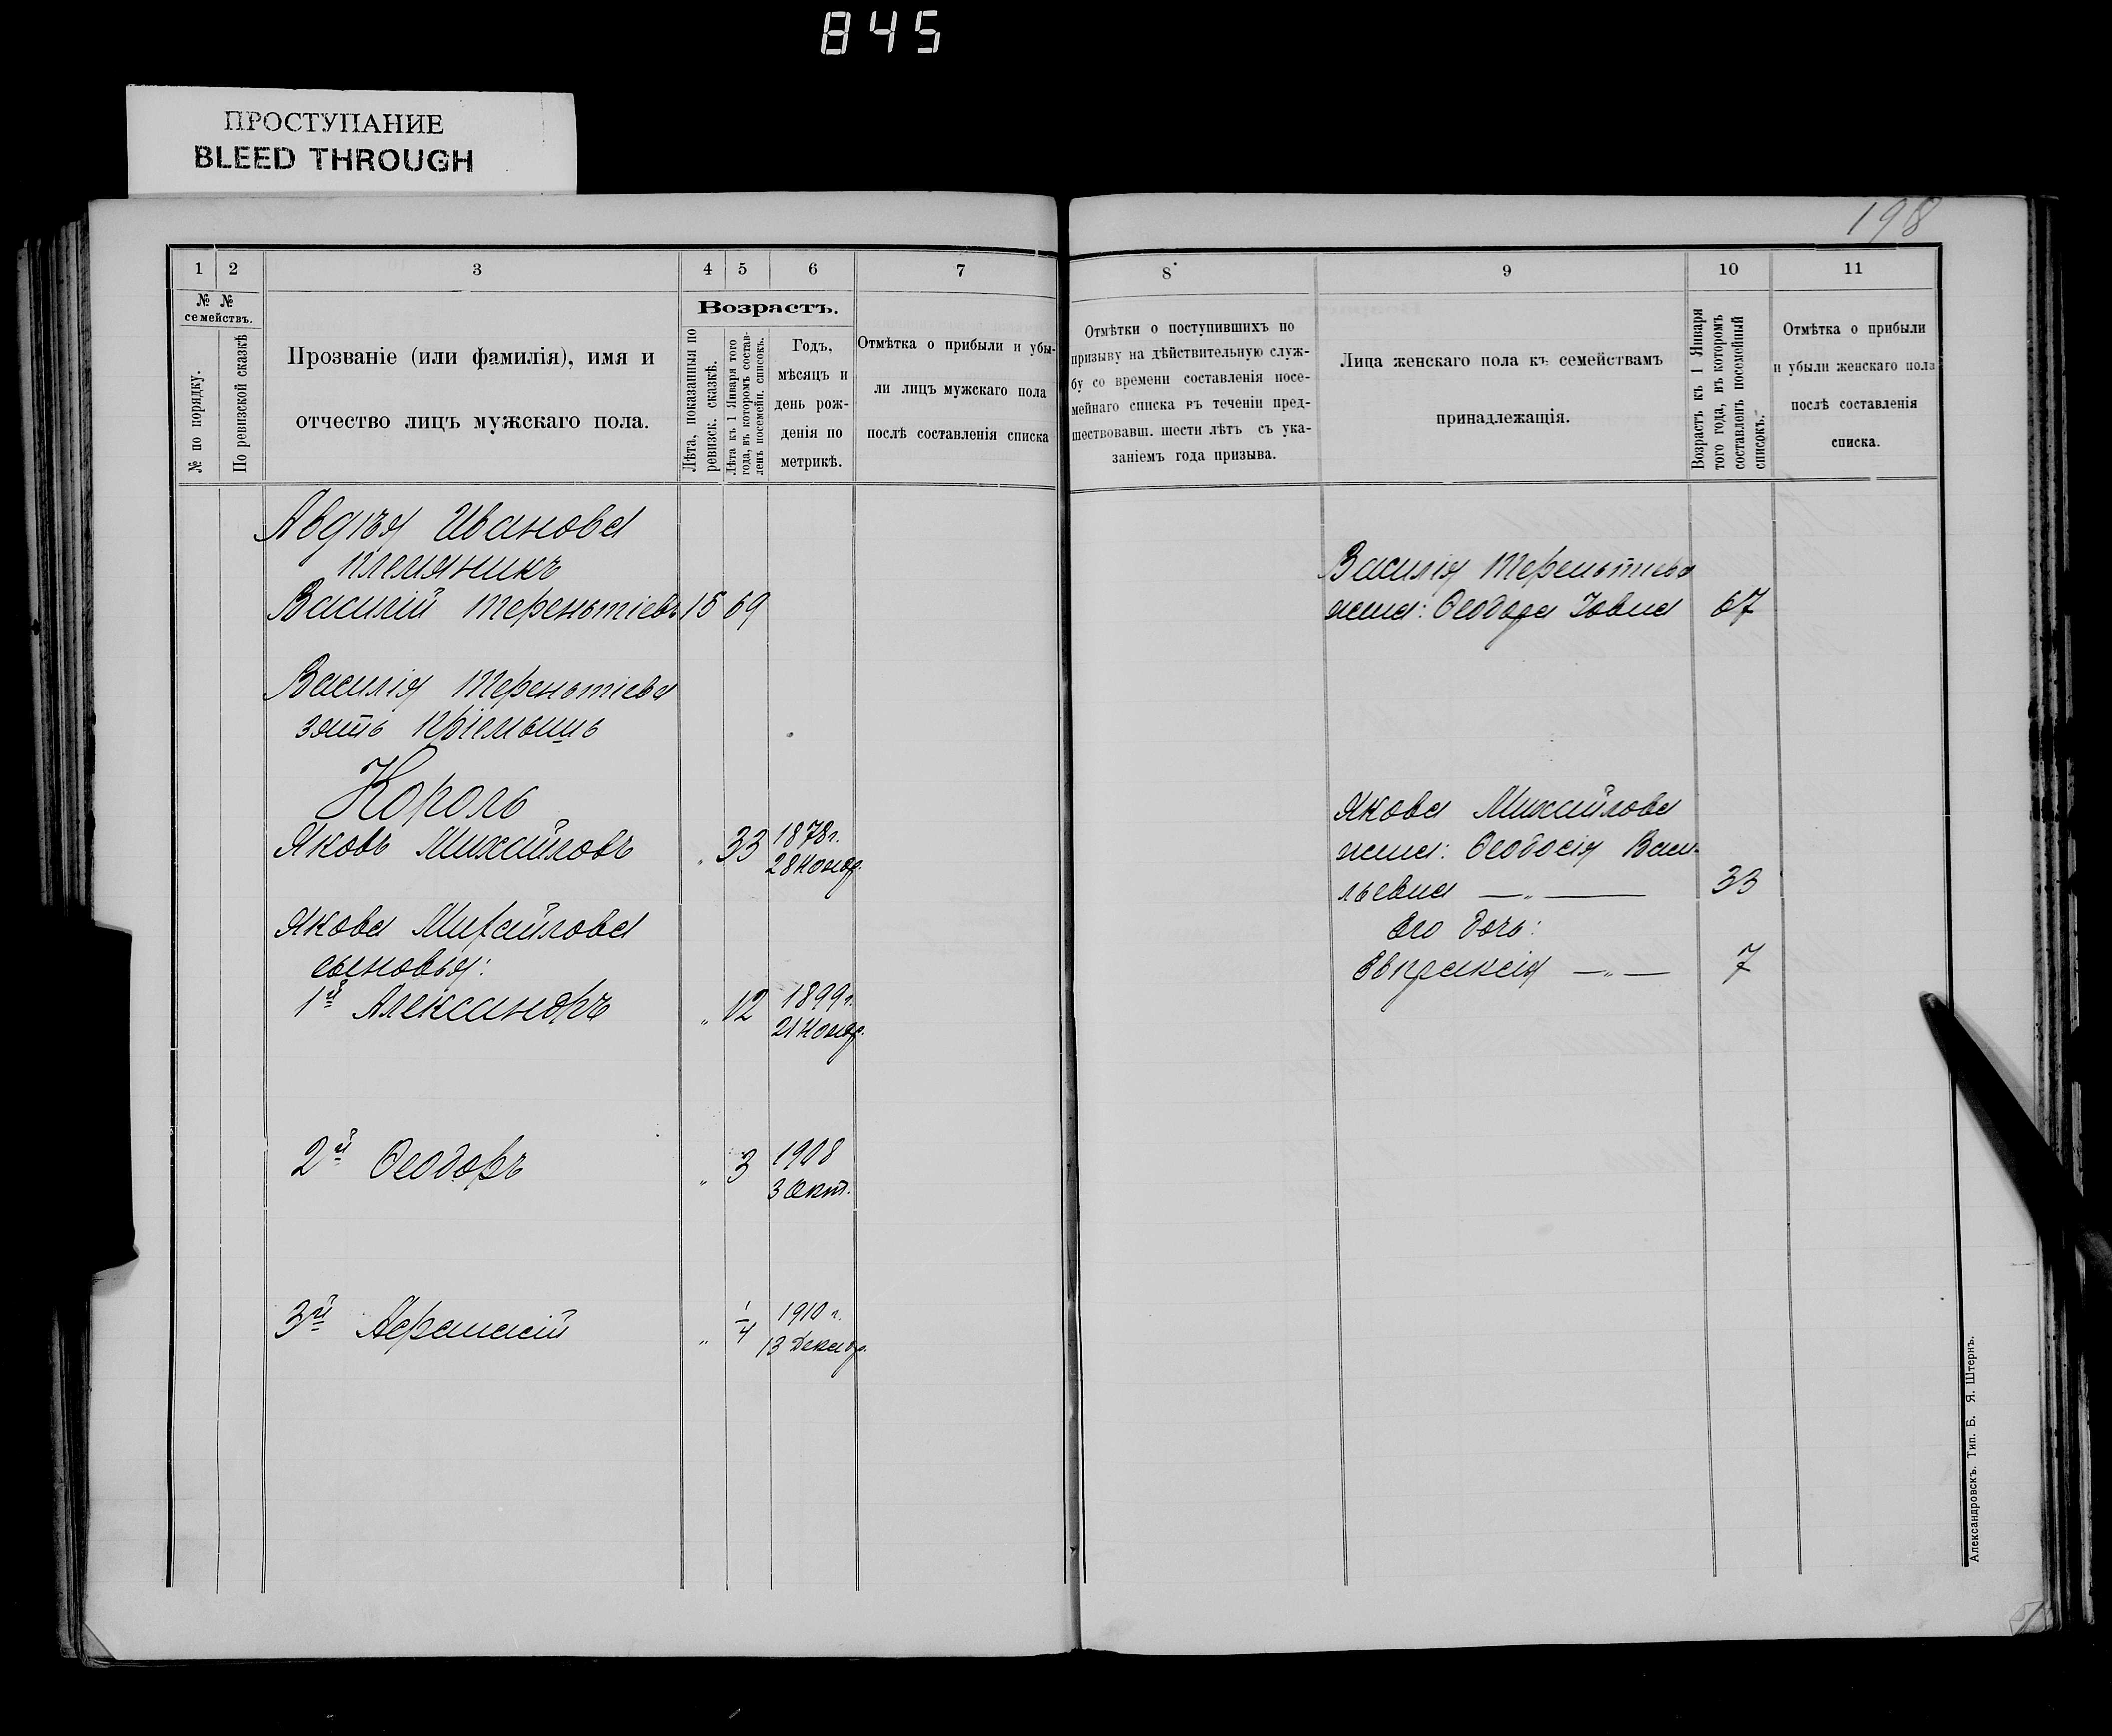 845
ПРОСТУПАНИЕ
BLEED THROUGH
198
1 2 3 4 5 6 7
№ №
семействъ.
№ по порядку.
По ревизской сказкѣ
Прозваніе (или фамилія), имя и
отчество лицъ мужскаго пола.
Возрастъ.
Лѣта, показанныя по
ревизск. сказкѣ.
Лѣта къ 1 Января того
года, въ которомъ состав-
ленъ посемейн. списокъ.
Годъ,
мѣсяцъ и
день рож-
денія по
метрикѣ.
Отмѣтка о прибыли и убы-
ли лицъ мужскаго пола
послѣ составленія списка
Авдѣя Иванова
племянникъ
Василій Терентьевъ 15 69
Василія Терентьева
зять пріемышъ
Король
Яковъ Михайловъ " 33 1878 г.
28 Ноябр.
Якова Михайлова
сыновья:
1й Александръ " 12 1899 г.
21 Ноябр.
2й Ѳеодоръ " 3 1908
3 Окт.
3й Афанасій " 1/4 1910 г.
13 Декабр.
8 9 10 11
Отмѣтки о поступившихъ по
призыву на дѣйствительную служ-
бу со времени составленія посе-
мейнаго списка въ теченіи пред-
шествовавш. шести лѣтъ съ ука-
заніемъ года призыва.
Лица женскаго пола къ семействамъ
принадлежащія.
Возрастъ къ 1 Января
того года, въ которомъ
составленъ посемейный
списокъ.
Отмѣтка о прибыли
и убыли женскаго пола
послѣ составленія
списка.
Василія Терентьева
жена: Ѳеодора Іовна 67
Якова Михайлова
жена: Ѳеодосія Васи-
льевна — " — 33
Его дочь:
Евпраксія — " — 7
Александровскъ. Тип. Б. Я. Штернъ.